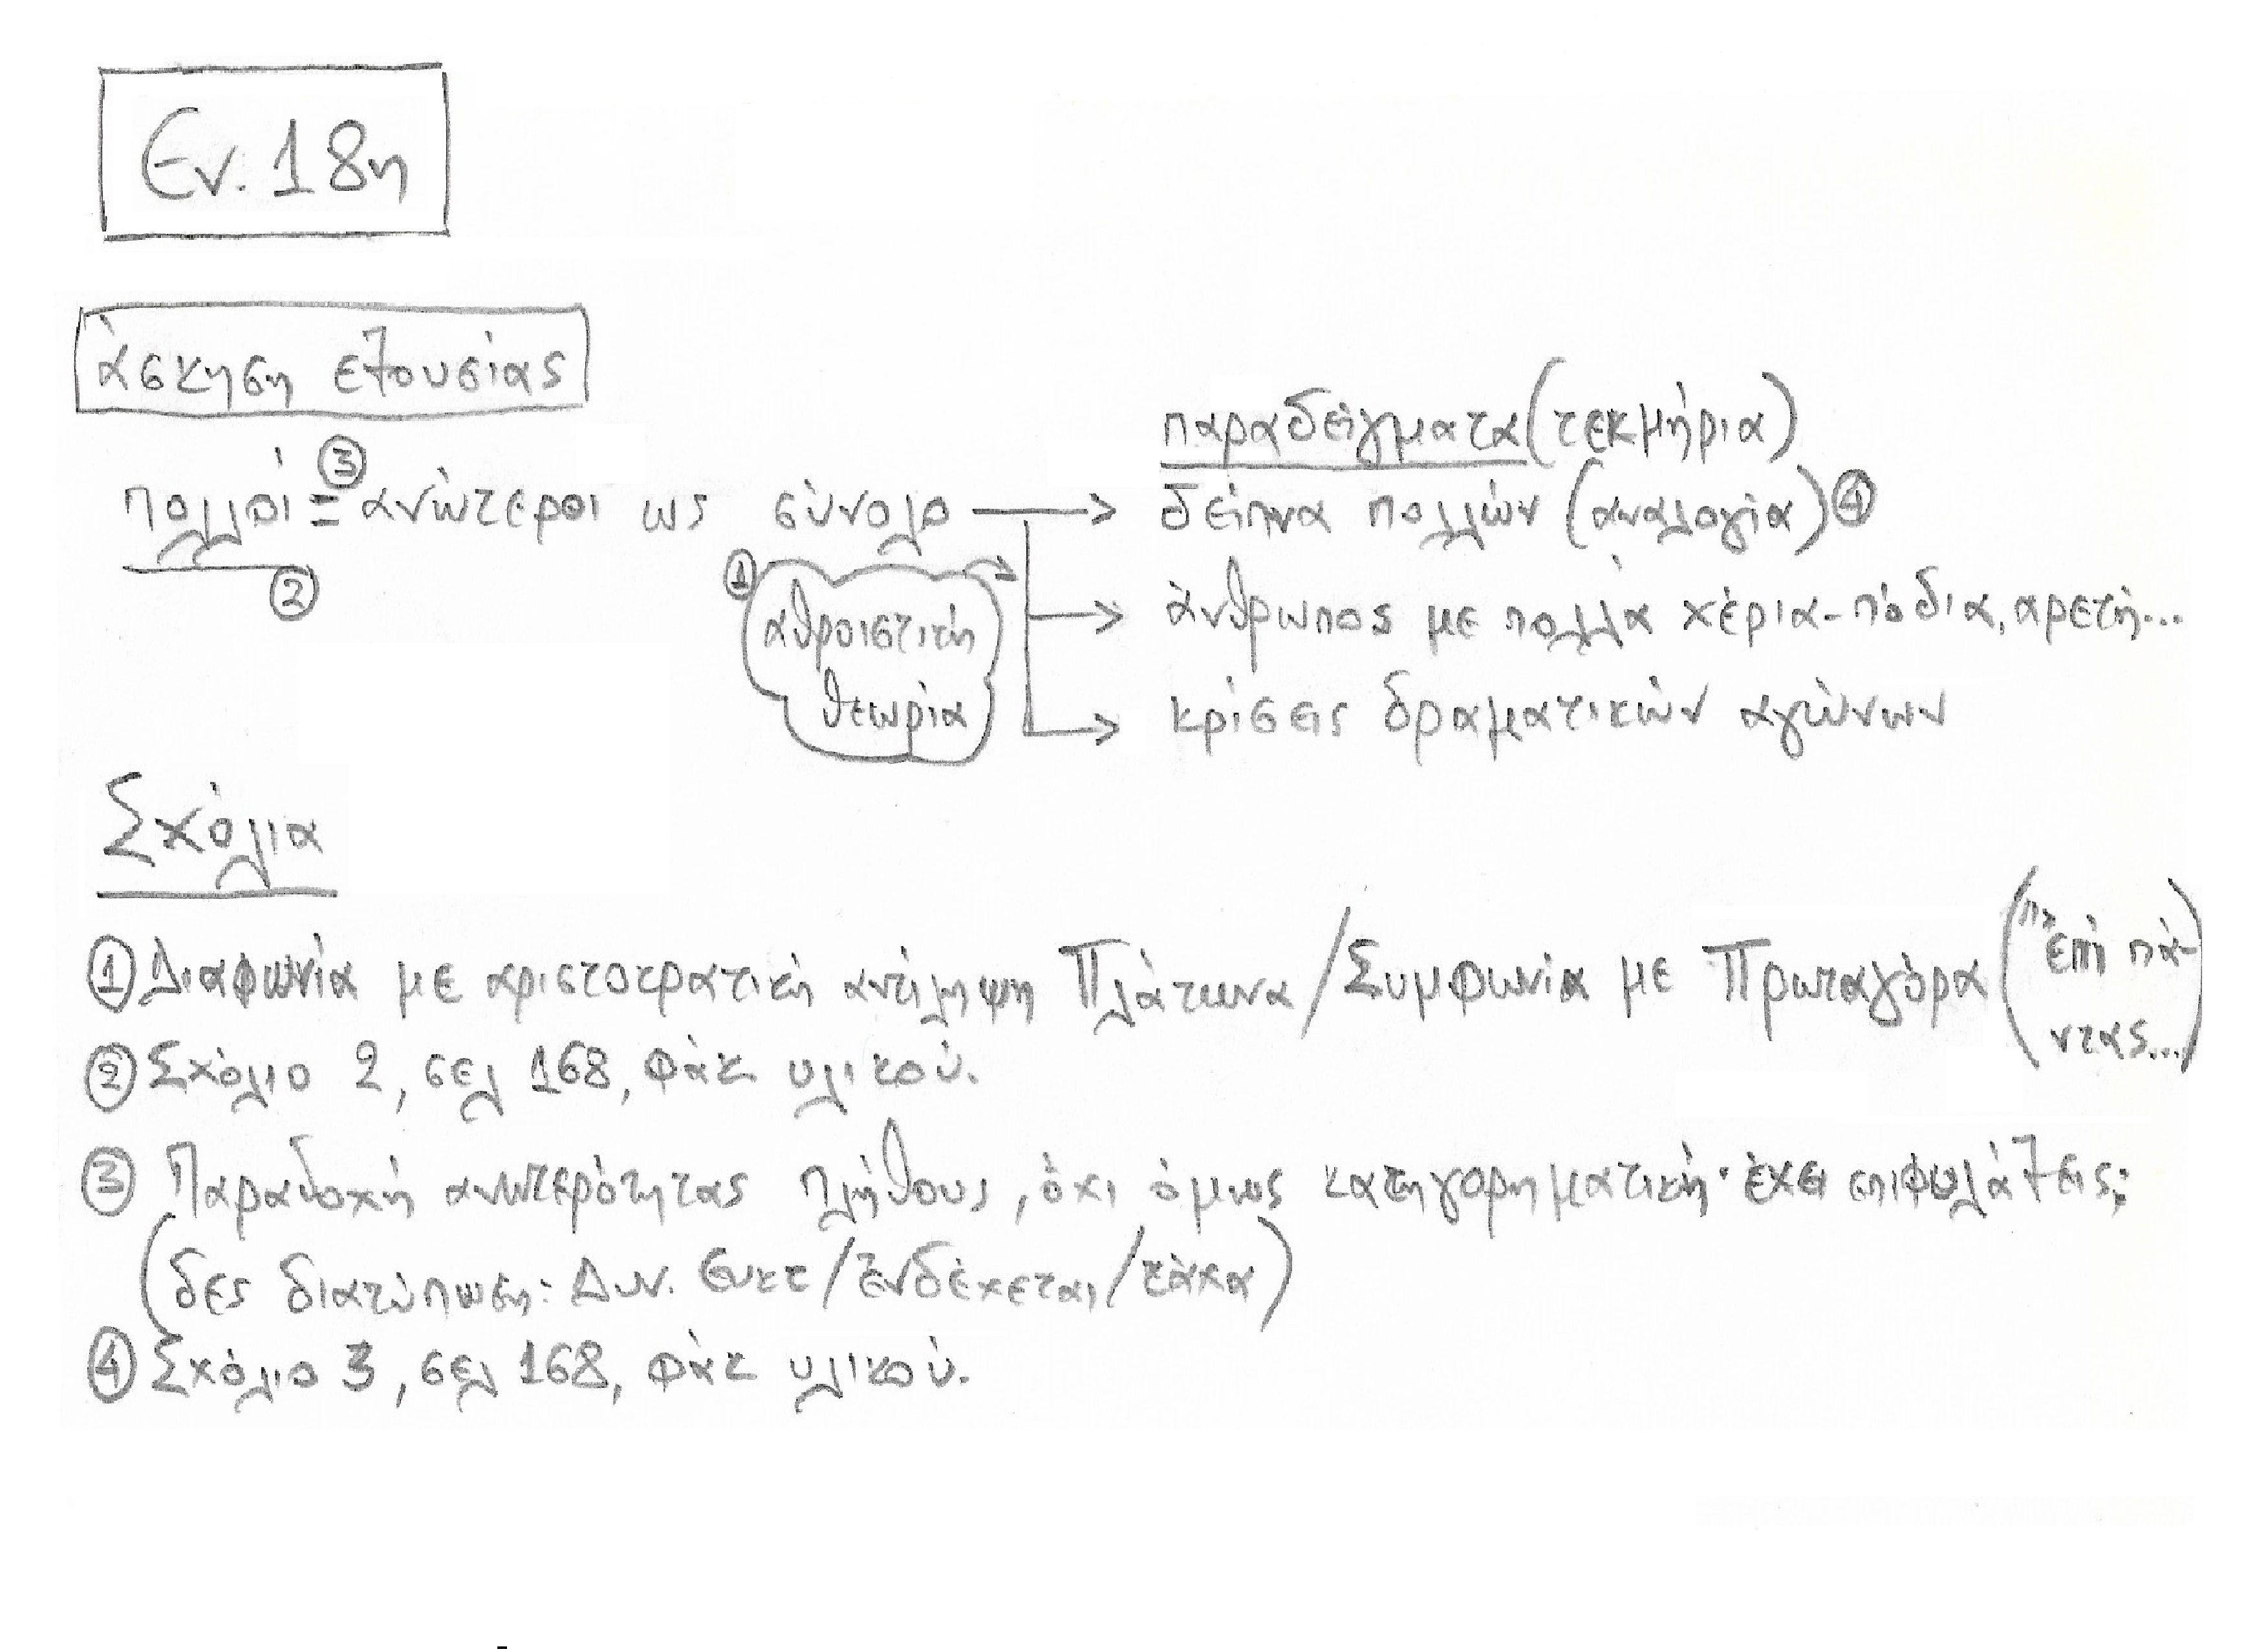 Εν. 18η
άσκηση εξουσίας
παραδείγματα (τεκμήρια)
πολλοί = ③ ανώτεροι ως σύνολο → δείπνα πολλών (αναλογία) ④
②
① αθροιστική
θεωρία
→ άνθρωπος με πολλά χέρια-πόδια, αρετή...
→ κρίσεις δραματικών αγώνων
Σχόλια
① Διαφωνία με αριστοκρατική αντίληψη Πλάτωνα / Συμφωνία με Πρωταγόρα ("Ἐπὶ πά-
ντας...)
② Σχόλιο 2, σελ 168, φάκ υλικού.
③ Παραδοχή ανωτερότητας πλήθους, όχι όμως κατηγορηματική· έχει επιφυλάξεις;
(δες διατύπωση: Δυν. Ευκτ / Ἐνδέχεται / τάχα)
④ Σχόλιο 3, σελ 168, φάκ υλικού.